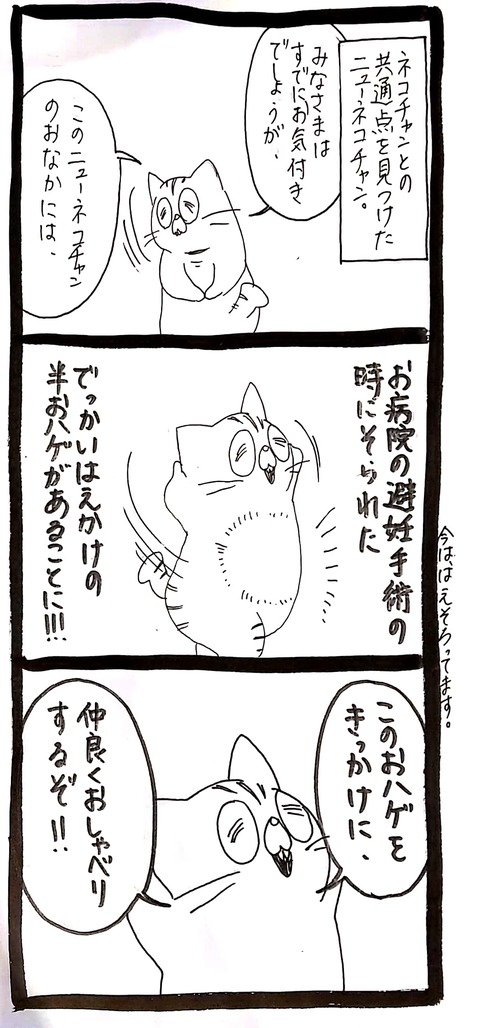 ネコチャンとの
共通点を見つけた
ニューネコチャン。
みなさまは
すでにお気付き
でしょうが、
このニューネコチャン
のおなかには、
お病院の避妊手術の
時にそられた
でっかいはえかけの
半おハゲがあることに!!!
今ははえそろってます。
このおハゲを
きっかけに、
仲良くおしゃべり
するぞ!!